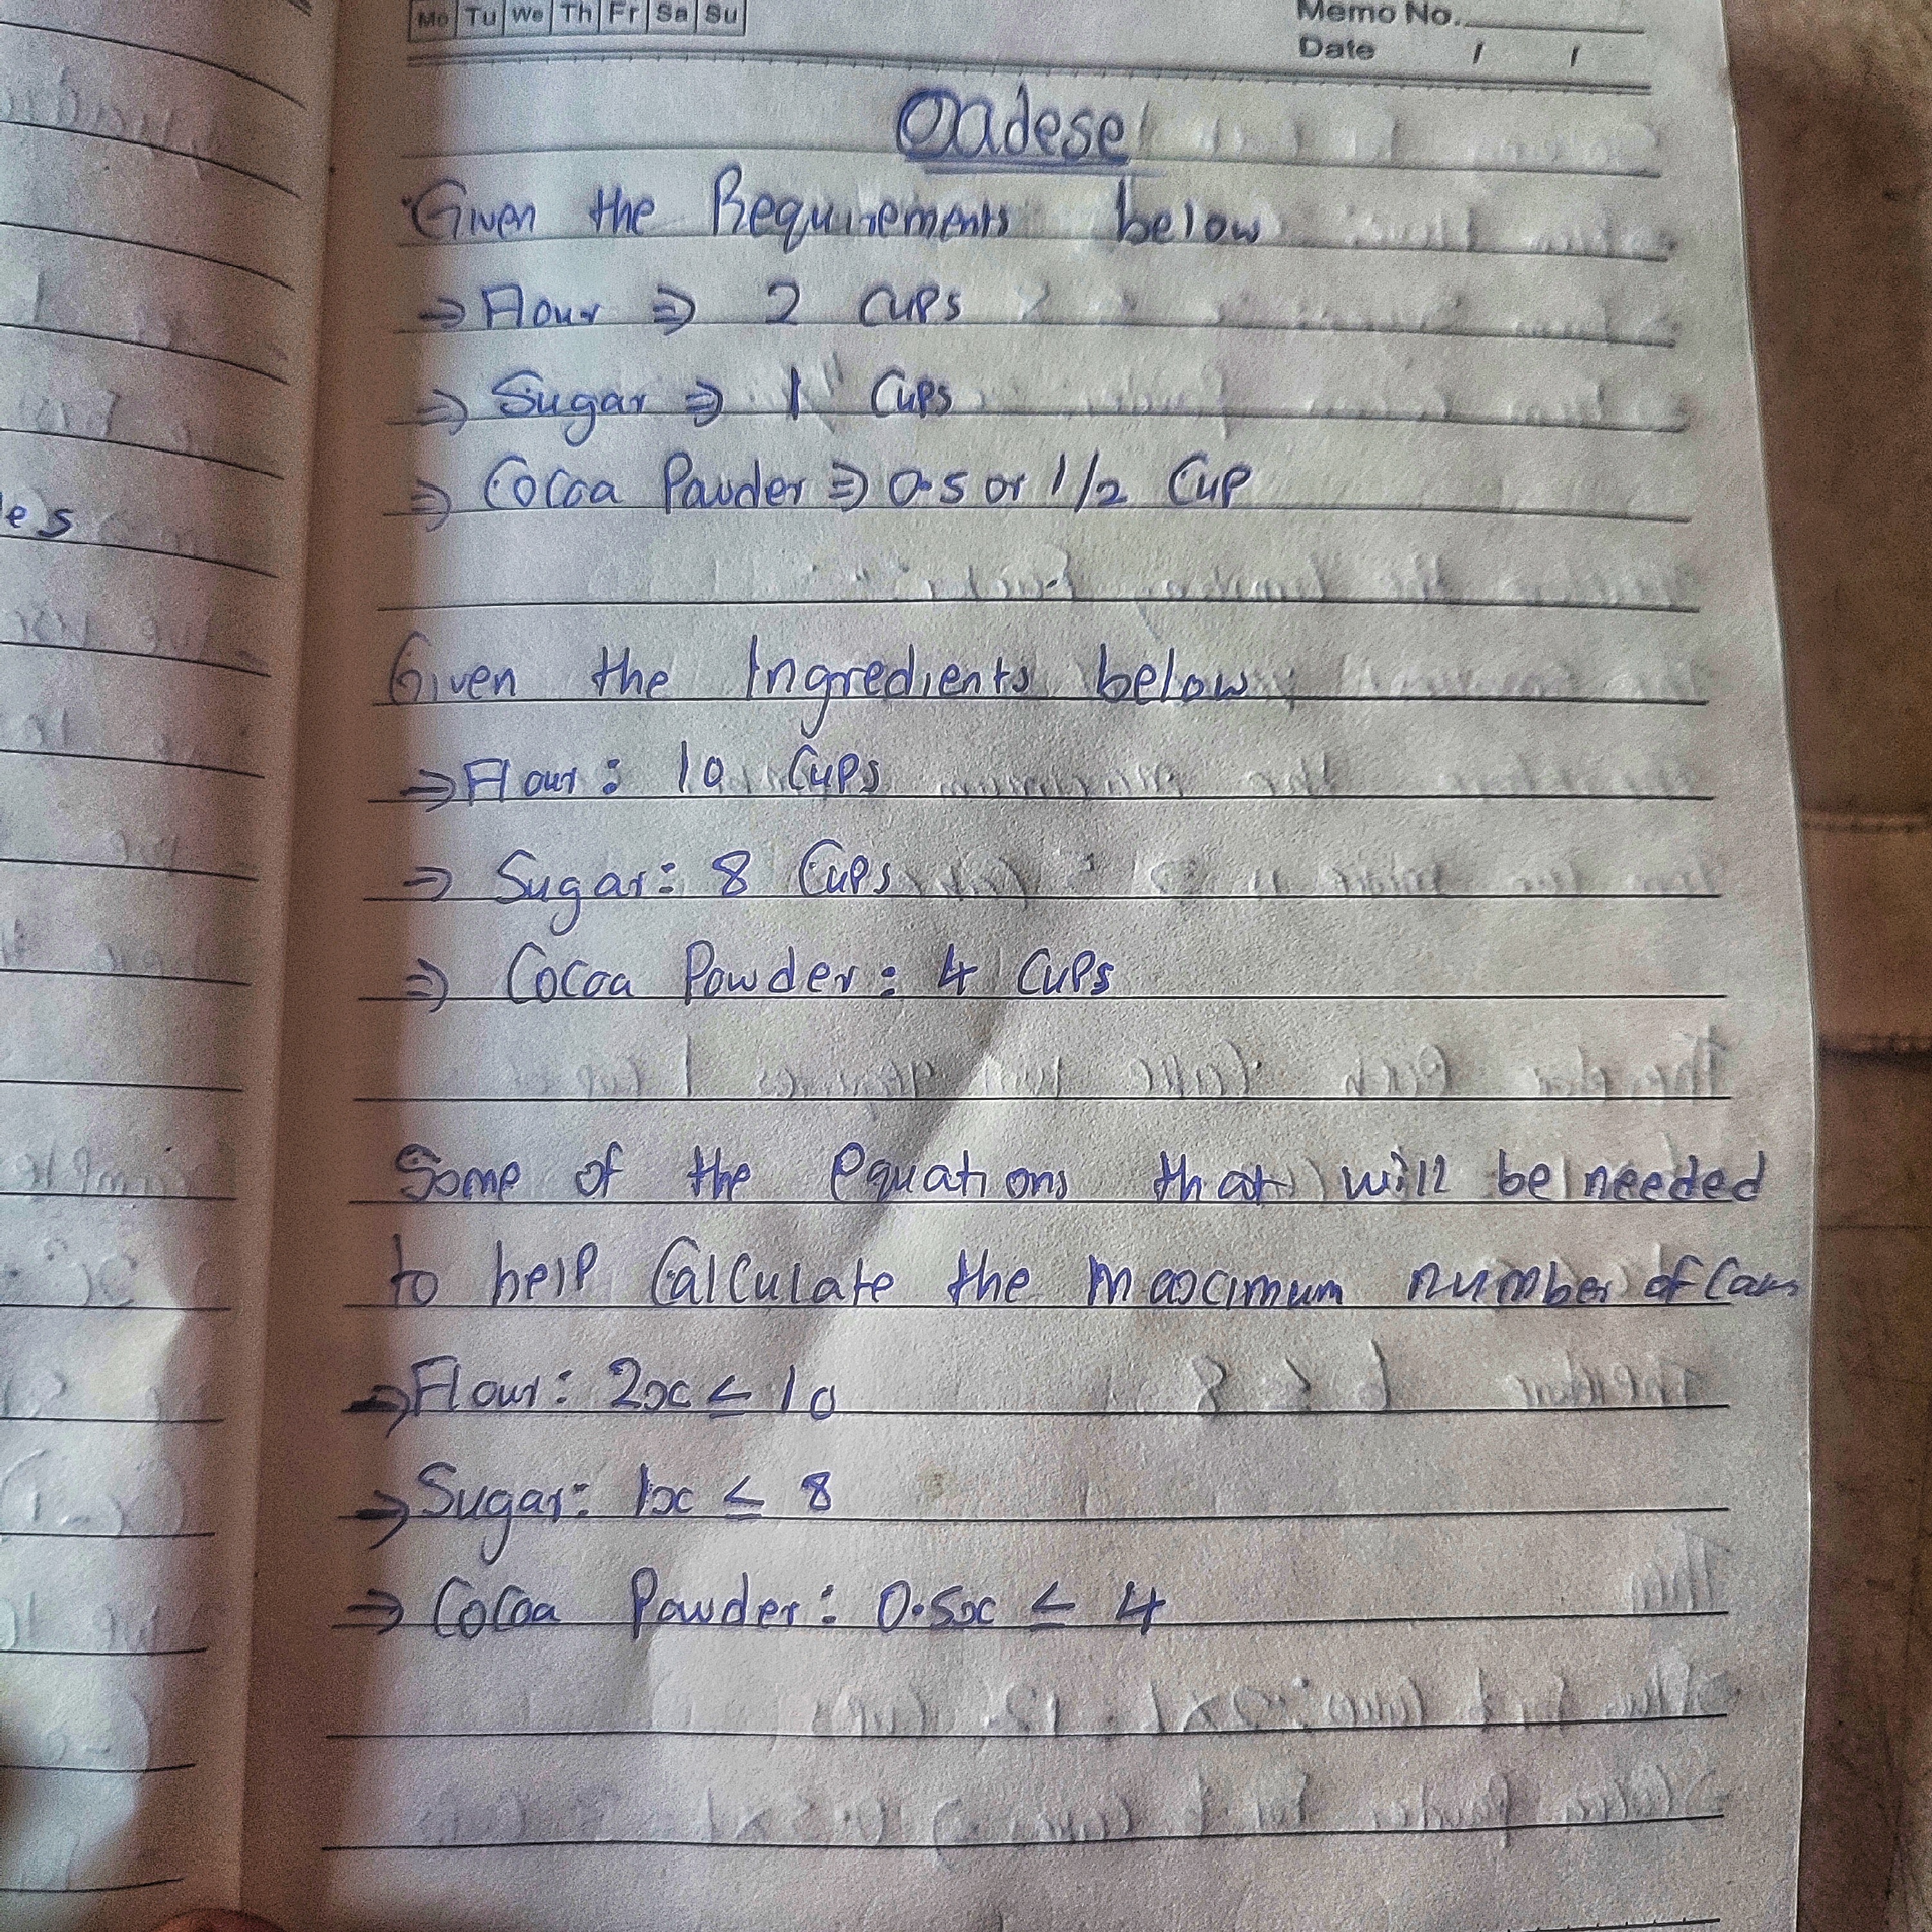 Mo Tu We Th Fr Sa Su
Memo No.
Date / /
Oadese
Given the Requirements below
→ Flour ⇒ 2 Cups
⇒ Sugar ⇒ 1 Cups
⇒ Cocoa Powder ⇒ 0.5 or 1/2 Cup
es
Given the Ingredients below
⇒ Flour: 10 Cups
⇒ Sugar: 8 Cups
⇒ Cocoa Powder: 4 Cups
Some of the equations that will be needed
to help Calculate the maximum number of
⇒ Flour: 2x ≤ 10
⇒ Sugar: 1x ≤ 8
⇒ Cocoa Powder: 0.5x ≤ 4